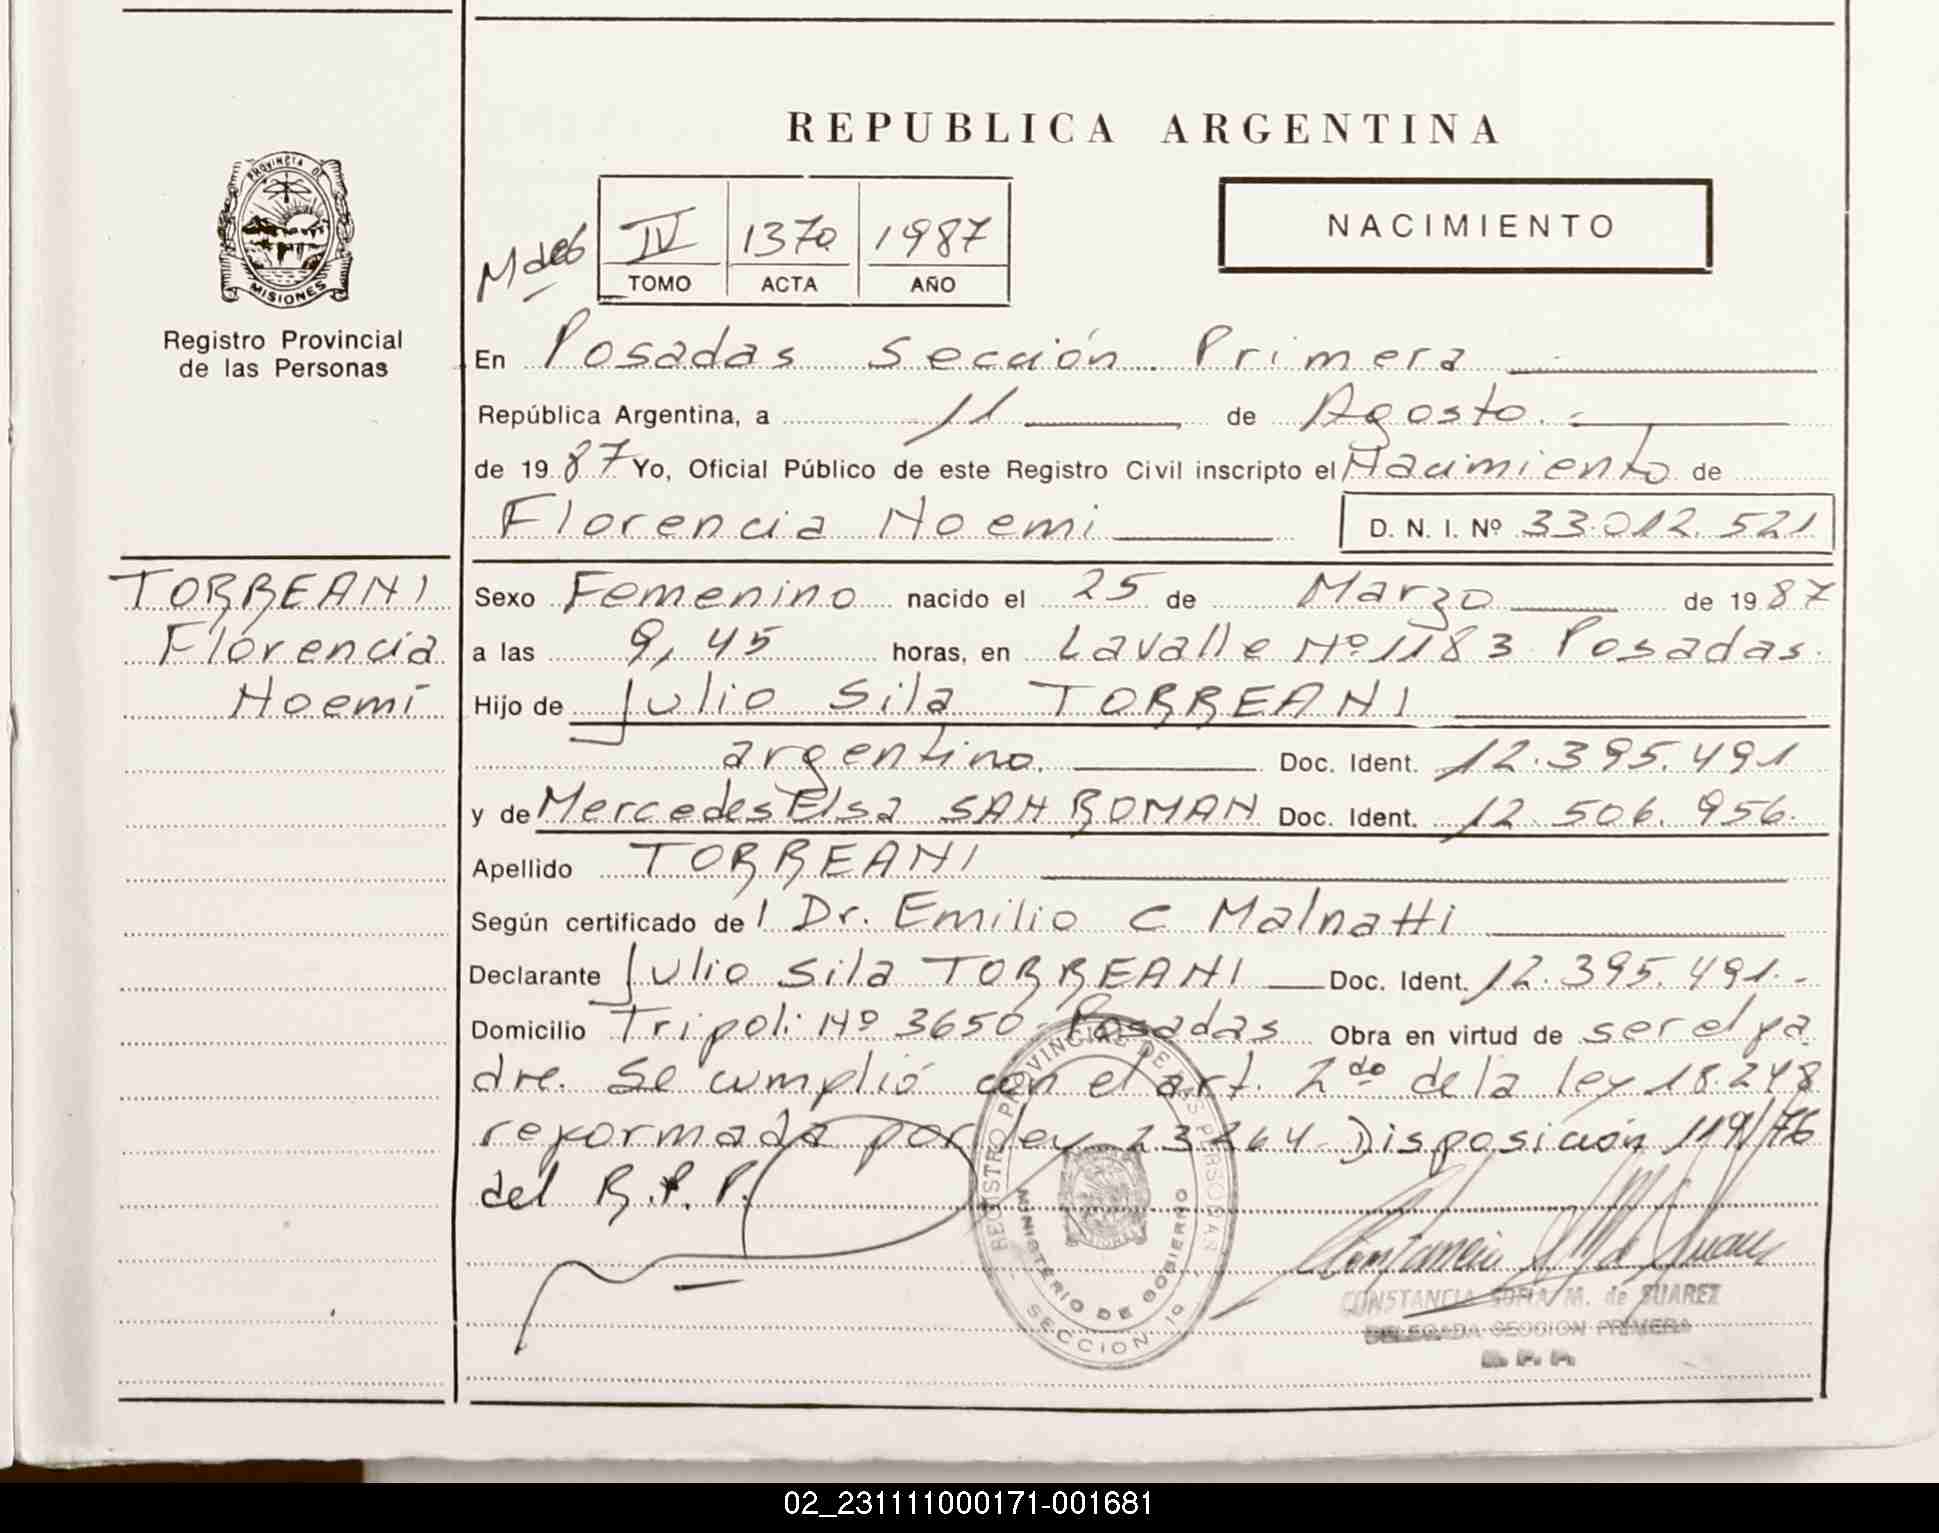 REPUBLICA ARGENTINA
PROVINCIA DE
MISIONES
Registro Provincial
de las Personas
IV 1370 1987
TOMO ACTA AÑO
NACIMIENTO
En Posadas Sección Primera
República Argentina, a 11 de Agosto.
de 1987 Yo, Oficial Público de este Registro Civil inscripto el Nacimiento de
Florencia Noemi D. N. I. Nº 33.012.521
TORREANI
Florencia
Noemí
Sexo Femenino nacido el 25 de Marzo de 1987
a las 9,45 horas, en Lavalle Nº 1183 Posadas.
Hijo de Julio Sila TORREANI
argentino. Doc. Ident. 12.395.491
y de Mercedes Elsa SAN ROMAN Doc. Ident. 12.506.956.
Apellido TORREANI
Según certificado del Dr. Emilio C Malnatti
Declarante Julio Sila TORREANI Doc. Ident. 12.395.491.-
Domicilio Tripoli Nº 3650 - Posadas Obra en virtud de ser el pa
dre. Se cumplió con el art. 2do de la ley 18.248
reformada por ley 23264 - Disposición 119/76
del R.P.P.
REGISTRO PROVINCIAL DE LAS PERSONAS
MINISTERIO DE GOBIERNO
SECCION 1º
CONSTANCIA SOFIA M. de SUAREZ
DELEGADA SECCION PRIMERA
R. P. P.
02_231111000171-001681